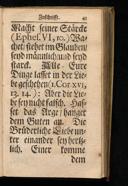 Zuschrifft. 41
Macht seiner Stärcke
(Ephes. VI, 10.) Wa-
chet / stehet im Glauben /
seyd männlich und seyd
starck. Alle Eure
Dinge lasset in der Lie-
be geschehen (1. Cor. XVI,
13. 14.): Aber die Lie-
be sey nicht falsch. Has-
set das Arge / hanget
dem Guten an. Die
Brüderliche Liebe un-
ter einander sey hertz-
lich. Einer komme
dem